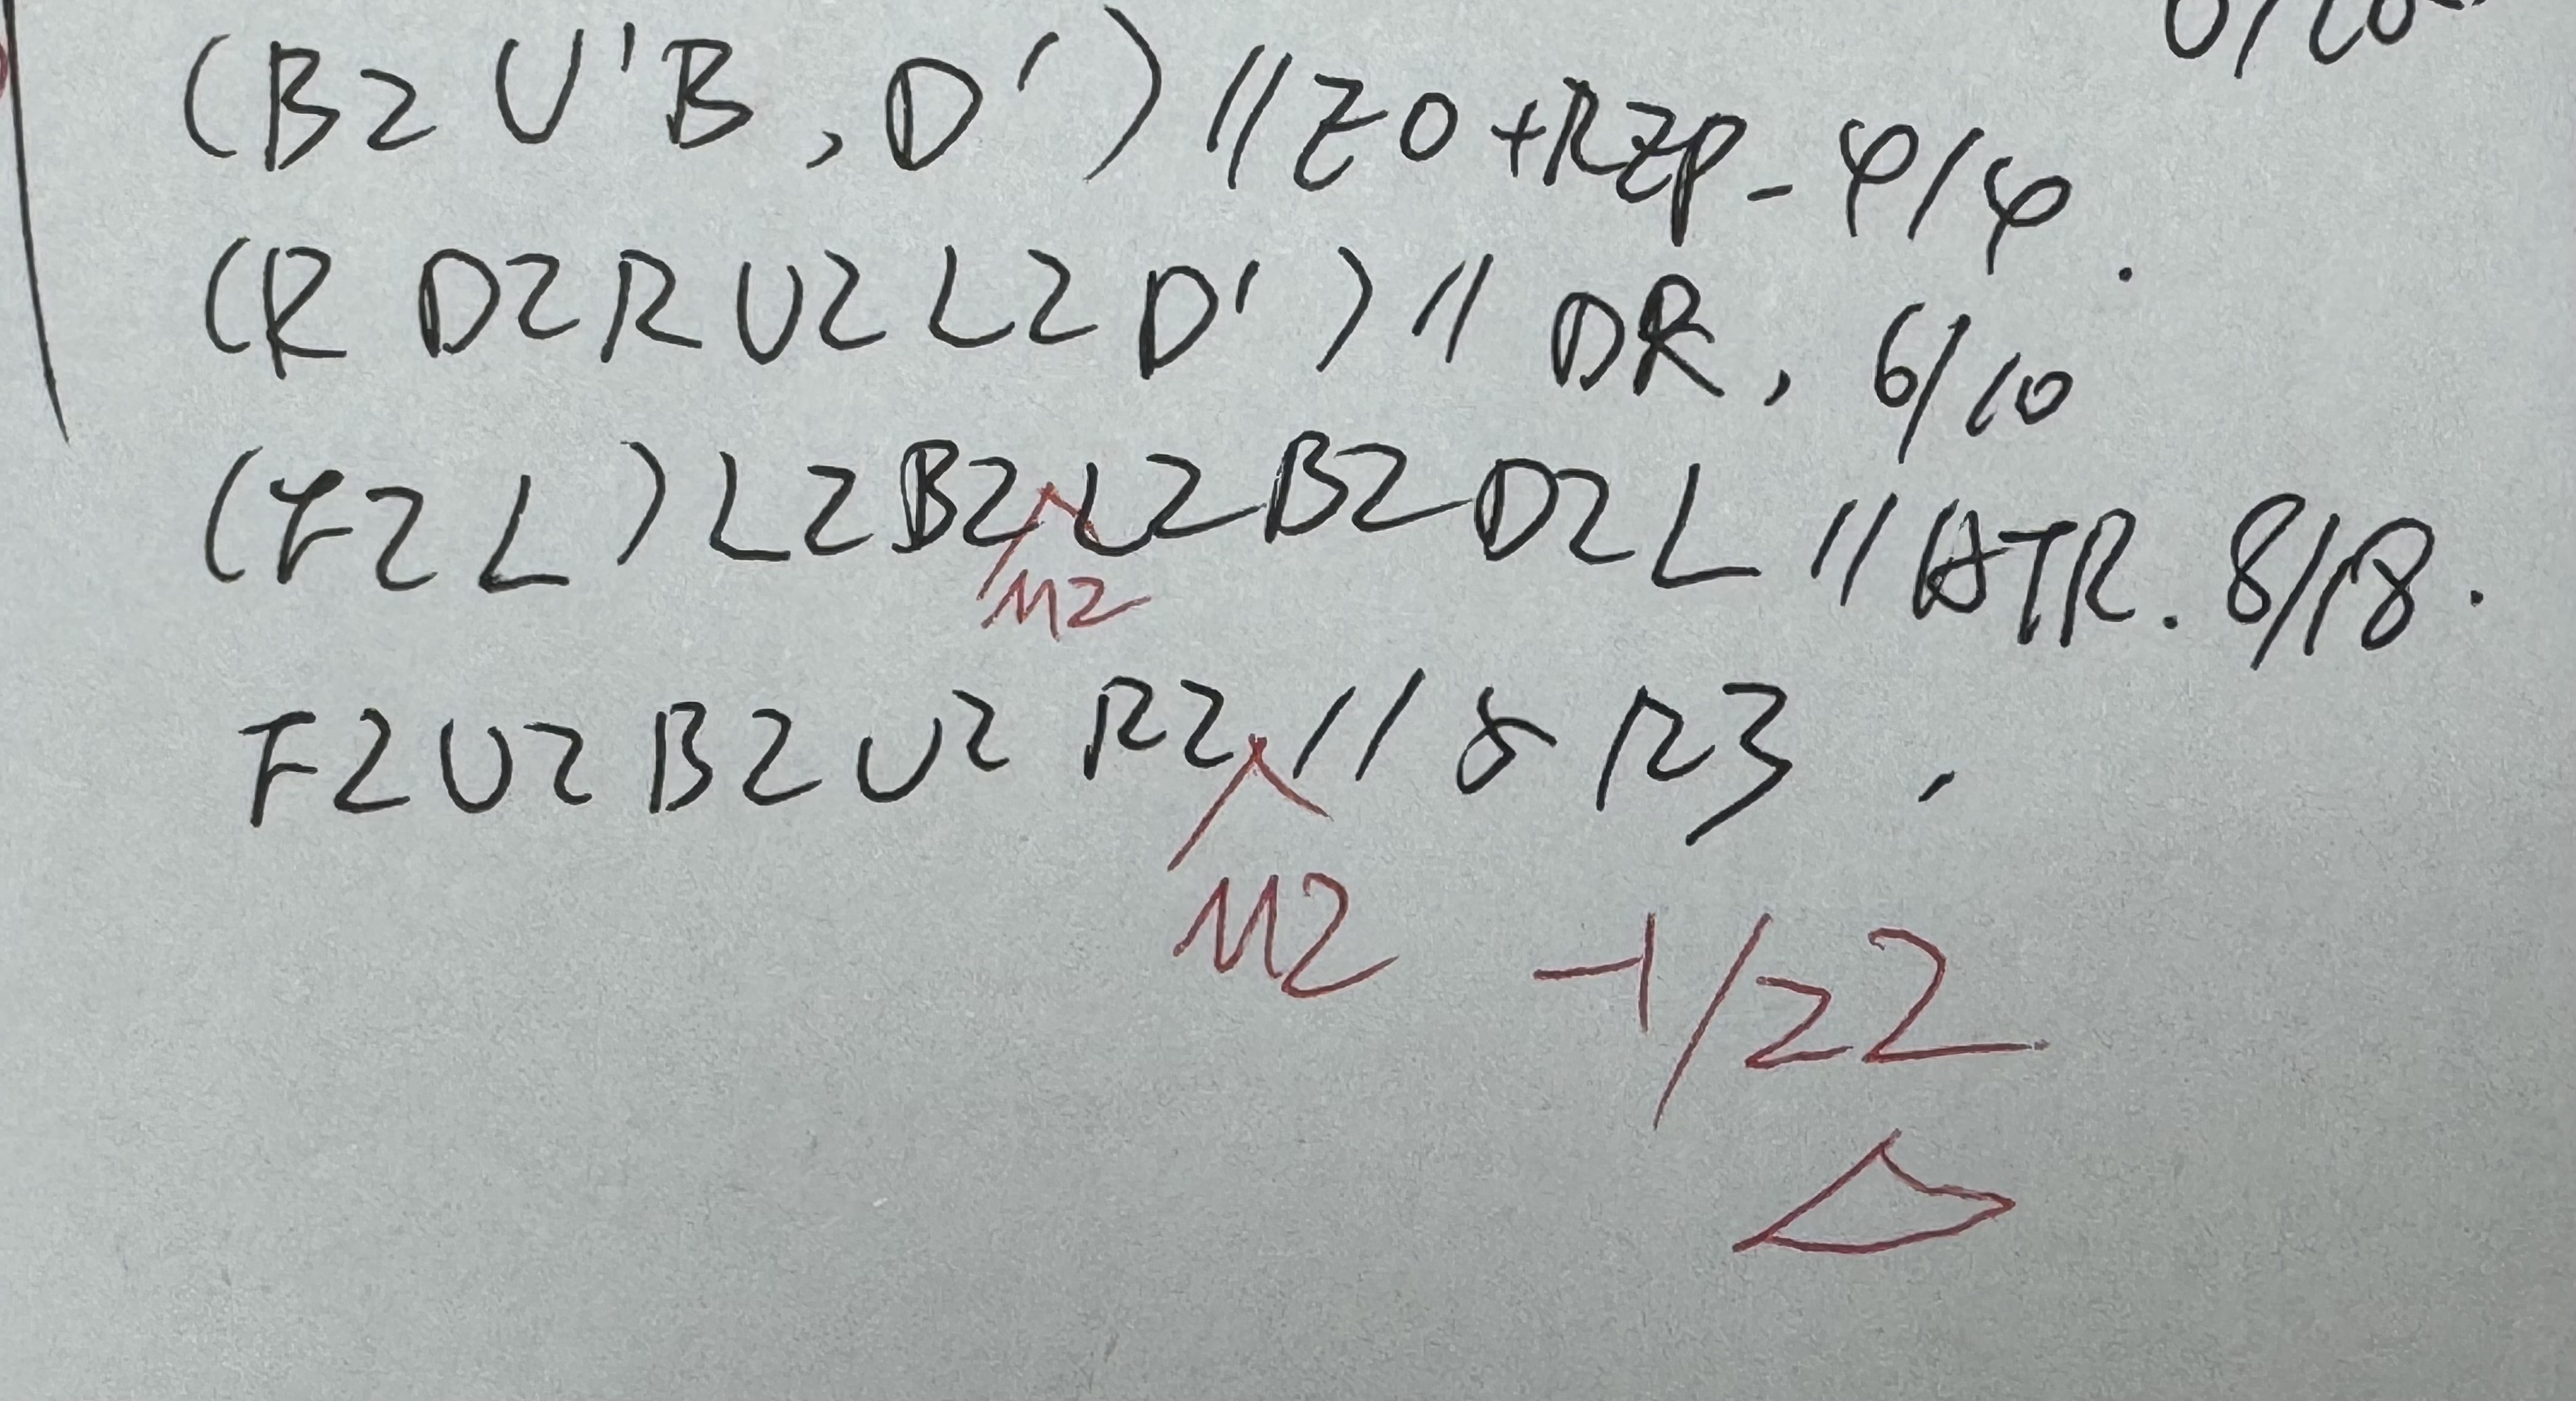 (B2 U'B, D') // EO+RZP - 4/4.
(R D2 R U2 L2 D') // DR, 6/10
(F2 L) L2 B2 L2 B2 D2 L // HTR. 8/18.
M2
F2 U2 B2 U2 R2 // & R3,
M2 -1/22